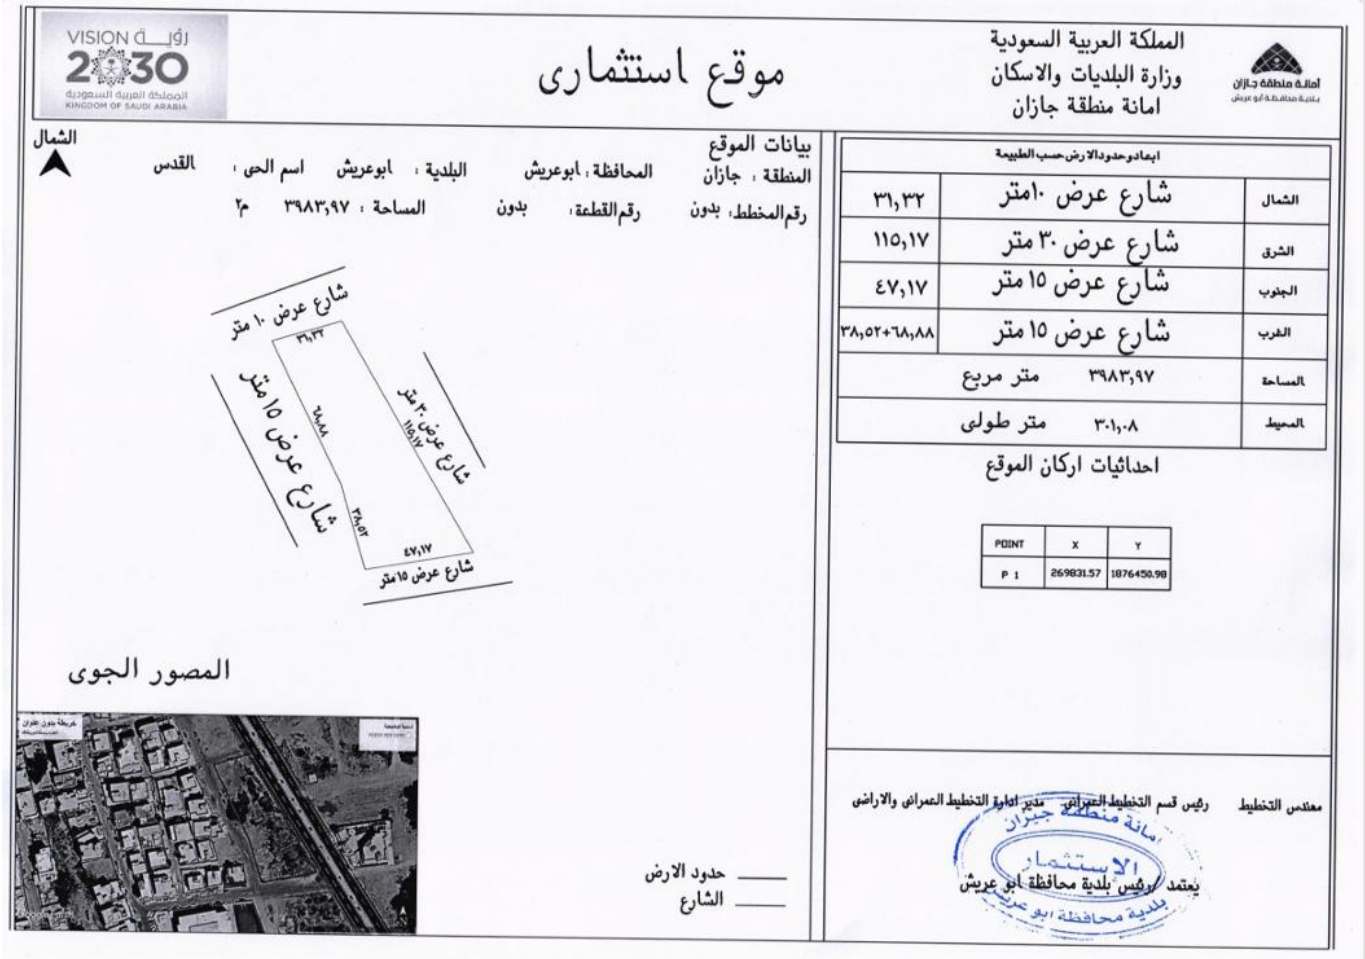 رؤيــــة VISION
2030
المملكة العربية السعودية
KINGDOM OF SAUDI ARABIA
موقع استثمارى
المملكة العربية السعودية
وزارة البلديات والاسكان
امانة منطقة جازان
أمانة منطقة جازان
بلدية محافظة أبو عريش
الشمال
بيانات الموقع
المنطقة : جازان المحافظة : ابوعريش البلدية : ابوعريش اسم الحى : القدس
رقم المخطط: بدون رقم القطعة: بدون المساحة : ٣٩٨٣,٩٧ م٢
ابعاد وحدود الارض حسب الطبيعة
الشمال شارع عرض ١٠متر ٣١,٣٢
الشرق شارع عرض ٣٠ متر ١١٥,١٧
الجنوب شارع عرض ١٥ متر ٤٧,١٧
الغرب شارع عرض ١٥ متر ٦٨,٨٨+٣٨,٥٢
المساحة ٣٩٨٣,٩٧ متر مربع
المحيط ٣٠١,٠٨ متر طولى
احداثيات اركان الموقع
POINT X Y
P 1 269831.57 1876450.98
شارع عرض ١٠ متر
٣١,٣٢
شارع عرض ٣٠ متر
١١٥,١٧
شارع عرض ١٥ متر
٦٨,٨٨
٣٨,٥٢
٤٧,١٧
شارع عرض ١٥ متر
المصور الجوى
خريطة بدون عنوان
حدود الارض
الشارع
مهندس التخطيط رئيس قسم التخطيط العمرانى مدير ادارة التخطيط العمرانى والاراضى
امانة منطقة جيزان
الاستثمار
يعتمد /رئيس بلدية محافظة ابو عريش
بلدية محافظة ابو عريش